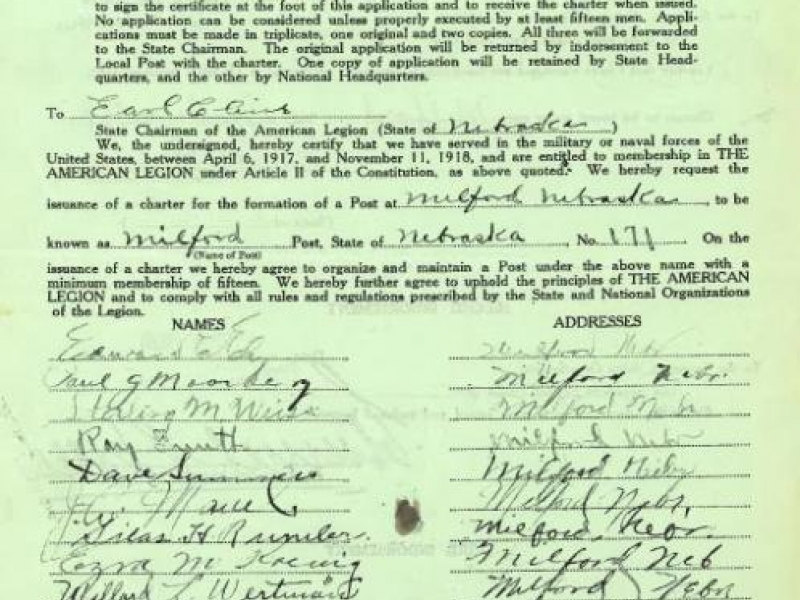 to sign the certificate at the foot of this application and to receive the charter when issued.
No application can be considered unless properly executed by at least fifteen men. Appli-
cations must be made in triplicate, one original and two copies. All three will be forwarded
to the State Chairman. The original application will be returned by indorsement to the
Local Post with the charter. One copy of application will be retained by State Head-
quarters, and the other by National Headquarters.
To Earl Cline
State Chairman of the American Legion (State of Nebraska )
We, the undersigned, hereby certify that we have served in the military or naval forces of the
United States, between April 6, 1917, and November 11, 1918, and are entitled to membership in THE
AMERICAN LEGION under Article II of the Constitution, as above quoted. We hereby request the
issuance of a charter for the formation of a Post at Milford Nebraska , to be
known as Milford Post, State of Nebraska , No. 171 . On the
(Name of Post)
issuance of a charter we hereby agree to organize and maintain a Post under the above name with a
minimum membership of fifteen. We hereby further agree to uphold the principles of THE AMERICAN
LEGION and to comply with all rules and regulations prescribed by the State and National Organizations
of the Legion.
NAMES ADDRESSES
Edward Milford Nebr
Paul G Milford Nebr.
M Milford Nebr
Ray Milford Nebr
Dave Summers Milford Nebr
Milford Nebr,
Silas H Milford, Nebr.
Ezra M Koenig Milford Neb
Willard L. Wertman Milford Nebr